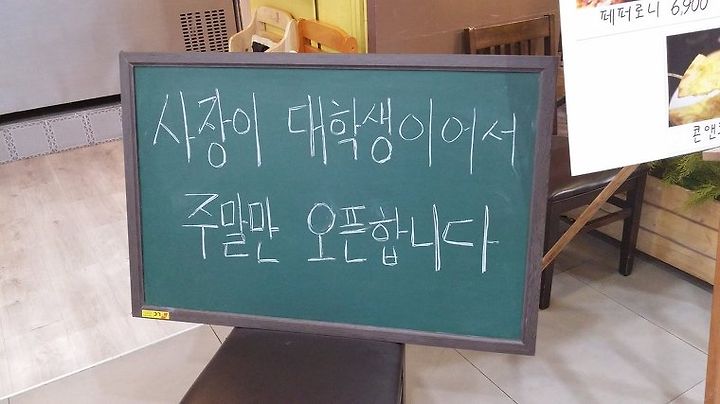 사장이 대학생이어서
주말만 오픈합니다
페퍼로니 6,900
콘앤